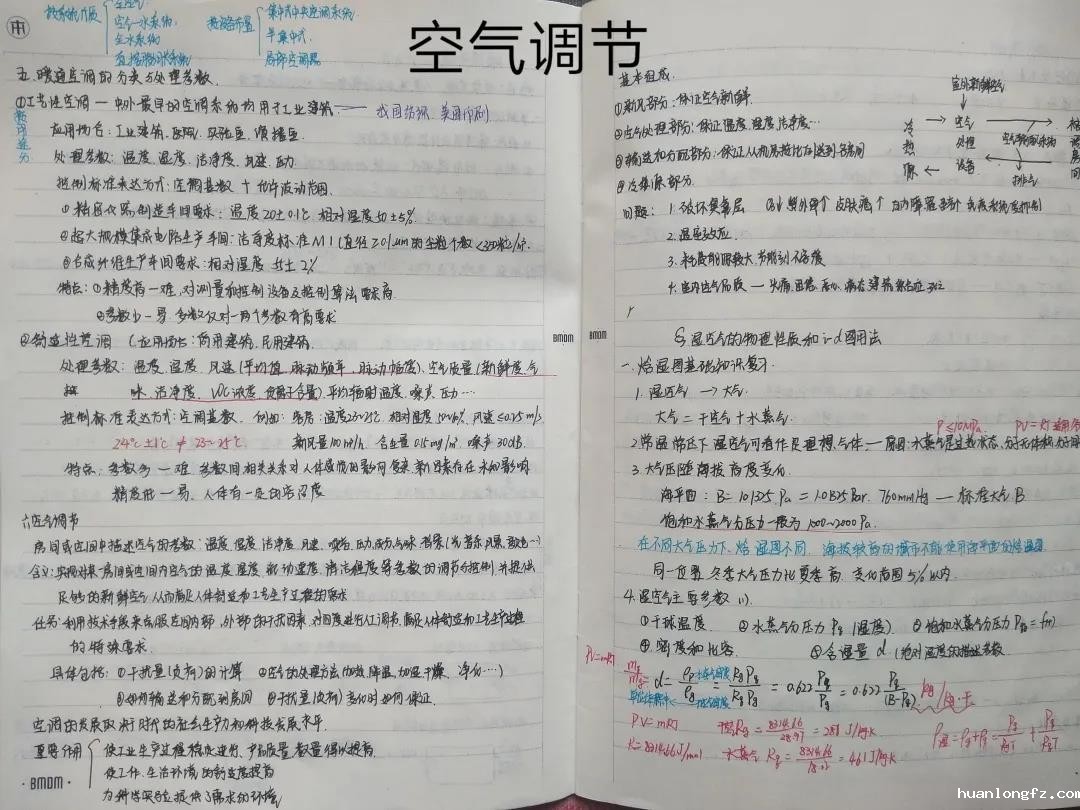 空气调节
按承载介质
全空气
空气—水系统
全水系统
直接蒸发式系统
按设备布置
集中式中央空调系统
半集中式
局部空调器
五.暖通空调的分类与处理参数
①工艺性空调 — 中外最早的空调系统均用于工业建筑 —— 我国纺织、美国印刷
应用场合:工业建筑、医院、实验室、模拟室
处理参数:温度、湿度、洁净度、风速、压力
控制标准表达方式:空调基数 + 允许波动范围
①精密仪器制造车间要求:温度20±0.1℃ 相对湿度50±5%
②超大规模集成电路生产车间:洁净度标准M1(直径≥0.1μm的尘粒个数<350粒/m³
③合成纤维生产车间要求:相对湿度 ±2%
特点:①精度高—难,对测量和控制设备及控制算法要求高
②参数少—易,多数仅对一两个参数有高要求
②舒适性空调 (应用场合:商用建筑、民用建筑
处理参数:温度、湿度、风速(平均值、脉动频率、脉动幅度)、空气质量(新鲜度、气
味、洁净度、VOC浓度、负离子含量)、平均辐射温度、噪声、压力…
控制标准表达方式:空调基数. 例如:客房:温度23~25℃ 相对湿度 风速≤0.25m/s
24℃±1℃ ≠ 23~25℃
新风量100m³/h 含尘量0.15mg/m³ 噪声30dB
特点:参数多—难 参数间相关关系对人体感觉的影响复杂
精度低—易,人体有一定的容忍度
六.空气调节
房间或空间中描述空气的参数:温度、湿度、洁净度、风速、噪声、压力、成分、气味、背景
含义:实现对某一房间或空间内空气的温度、湿度、流动速度、清洁程度等参数的调节与控制,并提供
足够的新鲜空气,从而满足人体舒适和工艺生产过程的要求
任务:利用技术手段来克服空间内部、外部的干扰因素,对 进行人工调节,满足人体舒适和工艺生产过程
的特殊要求
具体包括:①干扰量(负荷)的计算 ②空气的处理方法(加热、降温、加湿、干燥、净化…)
③如何输送和分配到房间 ④干扰量(负荷)变化时如何保证
空调的发展取决于时代的社会生产力和科技发展水平
重要作用
使工业生产过程稳定进行、产品质量、数量得以提高
使工作、生活环境的舒适度提高
为科学实验提供了需求的环境
·BMDM·
BMDM
BMDM
基本组成
①新风部分:保证空气新鲜
②空气处理部分:保证温度、湿度、洁净度…
③输送和分配部分:保证从机房按比例送到各房间
④冷热源部分
室外新鲜空气
冷
热
源
空气
处理
设备
排气
问题: 1.破坏臭氧层 O₃↓ 紫外线↑ 皮肤癌↑
2.温室效应
3.耗费能源较大,节能刻不容缓
4.室内空气品质 — 头痛、困倦、恶心、病态建筑综合症
§ 湿空气的物理性质和i-d图用法
一.焓湿图基础知识复习
1.湿空气 → 大气
大气 = 干空气 + 水蒸气
2.常温常压下,湿空气可看作是理想气体
P≤10MPa
3.大气压随海拔高度变化
海平面:B=101325 Pa = 1.01325 Bar 760mmHg — 标准大气B
饱和水蒸气分压力一般为1000~2000Pa
在不同大气压力下,焓湿图不同,海拔较高的城市不能使用海平面的焓湿图
同一位置,冬季大气压力比夏季高,变化范围5%以内
4.湿空气主要参数 11)
①干球温度 ②水蒸气分压力 Pq (湿度)
④密度和比容 ⑤含湿量 d (绝对湿度的描述参数
PV=mRT
PV=mRT
R=8314.66J/mol
水蒸气 Rq = 8314.66/18.02 = 461 J/kg·K
huanlongfz.com